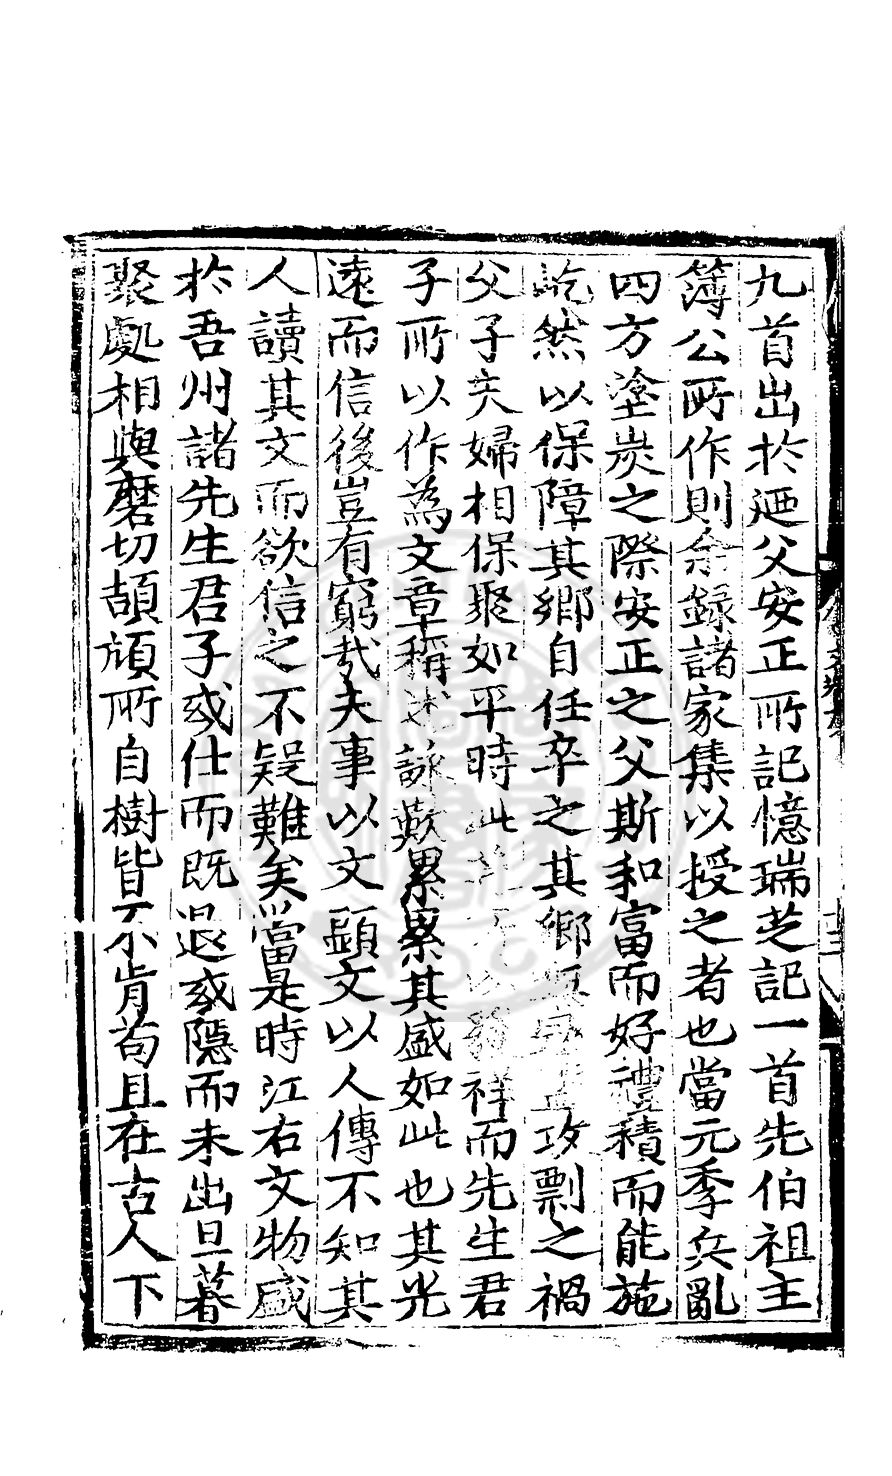 九首出於廼父安正所記憶瑞芝記一首先伯祖主
簿公所作則余録諸家集以授之者也當元季兵亂
四方塗炭之際安正之父斯和富而好禮積而能施
屹然以保障其鄉自任卒之其鄉攻剽之禍
父子夫婦相保聚如平時此祥而先生君
子所以作為文章稱述詠歎累累其盛如此也其光
遠而信後豈有窮哉夫事以文顕文以人傳不知其
人讀其文而欲信之不疑難矣當是時江右文物盛
於吾州諸先生君子或仕而既退或隱而未出旦暮
聚處相與磨切頡頏所自樹皆不肯苟且在古人下